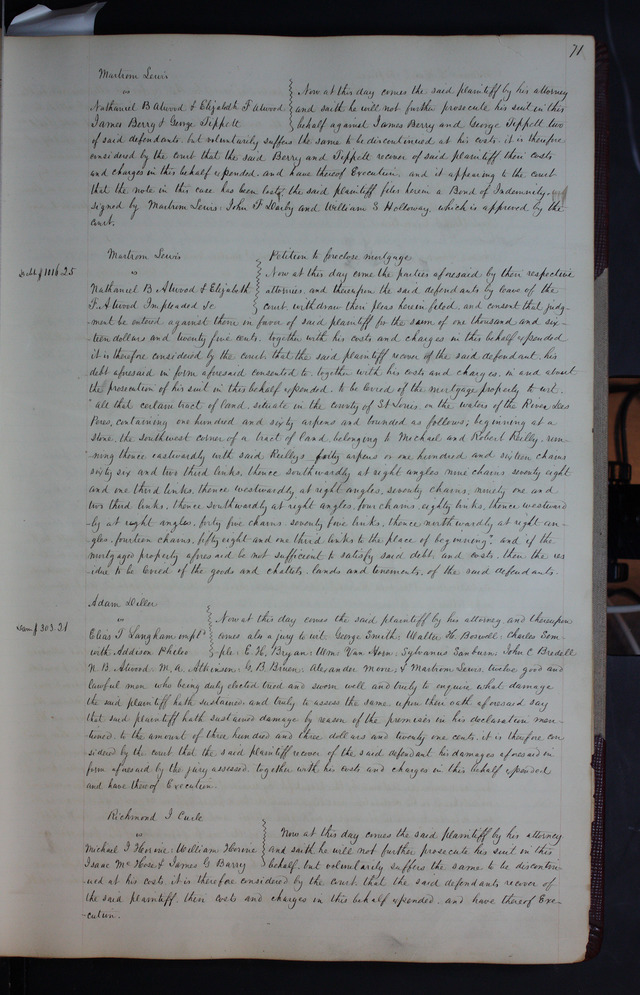 71
Martrom Lewis
vs
Nathaniel B Atwood & Elizabeth F Atwood
James Berry & George Tippett
Now at this day comes the said plaintiff by his attorney
and saith he will not further prosecute his suit in this
behalf against James Berry and George Tippett two
of said defendants, but voluntarily suffers the same to be discontinued at his costs. it is therefore
considered by the court that the said Berry and Tippett recover of said plaintiff their costs
and charges in this behalf expended. and have thereof Execution. and it appearing to the court
that the note in this case has been lost, the said plaintiff files herein a Bond of Indemnity
signed by Martrom Lewis: John F Darby and William S Holloway. which is approved by the
court.
Debt $1016.25
Martrom Lewis
vs
Nathaniel B. Atwood & Elizabeth
F. Atwood Impleaded &c
Petition to foreclose mortgage
Now at this day come the parties aforesaid by their respective
attornies. and thereupon the said defendants by leave of the
court. withdraw their pleas herein filed. and consent that judg-
ment be entered against them in favor of said plaintiff for the sum of one thousand and six-
teen dollars and twenty five cents. together with his costs and charges in this behalf expended
it is therefore considered by the court that the said plaintiff recover of the said defendant, his
debt aforesaid in form aforesaid consented to, together with his costs and charges, in and about
the prosecution of his suit in this behalf expended. to be levied of the mortgage property to wit.
"all that certain tract of land, situate in the county of St Louis. on the waters of the River Des
Peres, containing one hundred and sixty arpens and bounded as follows; beginning at a
stone, the southwest corner of a tract of land belonging to Michael and Robert Reilly, run-
ning thence eastwardly with said Reillys forty arpens or one hundred and sixteen chains
sixty six and two third links, thence southwardly at right angles nine chains seventy eight
and one third links, thence westwardly at right angles, seventy chains, ninety one and
two third links, thence southwardly at right angles, four chains, eighty links, thence westward-
ly at right angles, forty five chains, seventy five links, thence northwardly at right an-
gles, fourteen chains, fifty eight and one third links to the place of beginning", and if the
mortgaged property aforesaid be not sufficient to satisfy said debt, and costs, then the res-
idue to be levied of the goods and chattels, lands and tenements, of the said defendants.
Dam $303.21
Adam Diller
vs
Elias T Langham impl'd
with Addison Phileo
Now at this day comes the said plaintiff by his attorney, and thereupon
comes also a jury to wit: George Smith: Walter H. Boswell: Charles Sem-
ple: E. H. Bryan: Wm. Van Horn: Sylvanus Sanburn: John C Bedell
N. B. Atwood: M. A. Atkinson: G. B. Brison: Alexander Moore: & Martrom Lewis, twelve good and
lawful men who being duly elected tried and sworn well and truly to enquire what damage
the said plaintiff hath sustained. and truly to assess the same. upon their oath aforesaid say
that said plaintiff hath sustained damage by reason of the premises in his declaration men-
tioned. to the amount of three hundred and three dollars and twenty one cents, it is therefore con-
sidered by the court that the said plaintiff recover of the said defendant his damages aforesaid in
form aforesaid by the jury assessed. together with his costs and charges in this behalf expended
and have thereof Execution.
Richmond J Curle
vs
Michael J Hornie: William Hornie
Isaac McHose & James G Barry
Now at this day comes the said plaintiff by his attorney
and saith he will not further prosecute his suit in this
behalf. but voluntarily suffers the same to be discontin-
ued at his costs. it is therefore considered by the court that the said defendants recover of
the said plaintiff. their costs and charges in this behalf expended. and have thereof Exe-
cution.